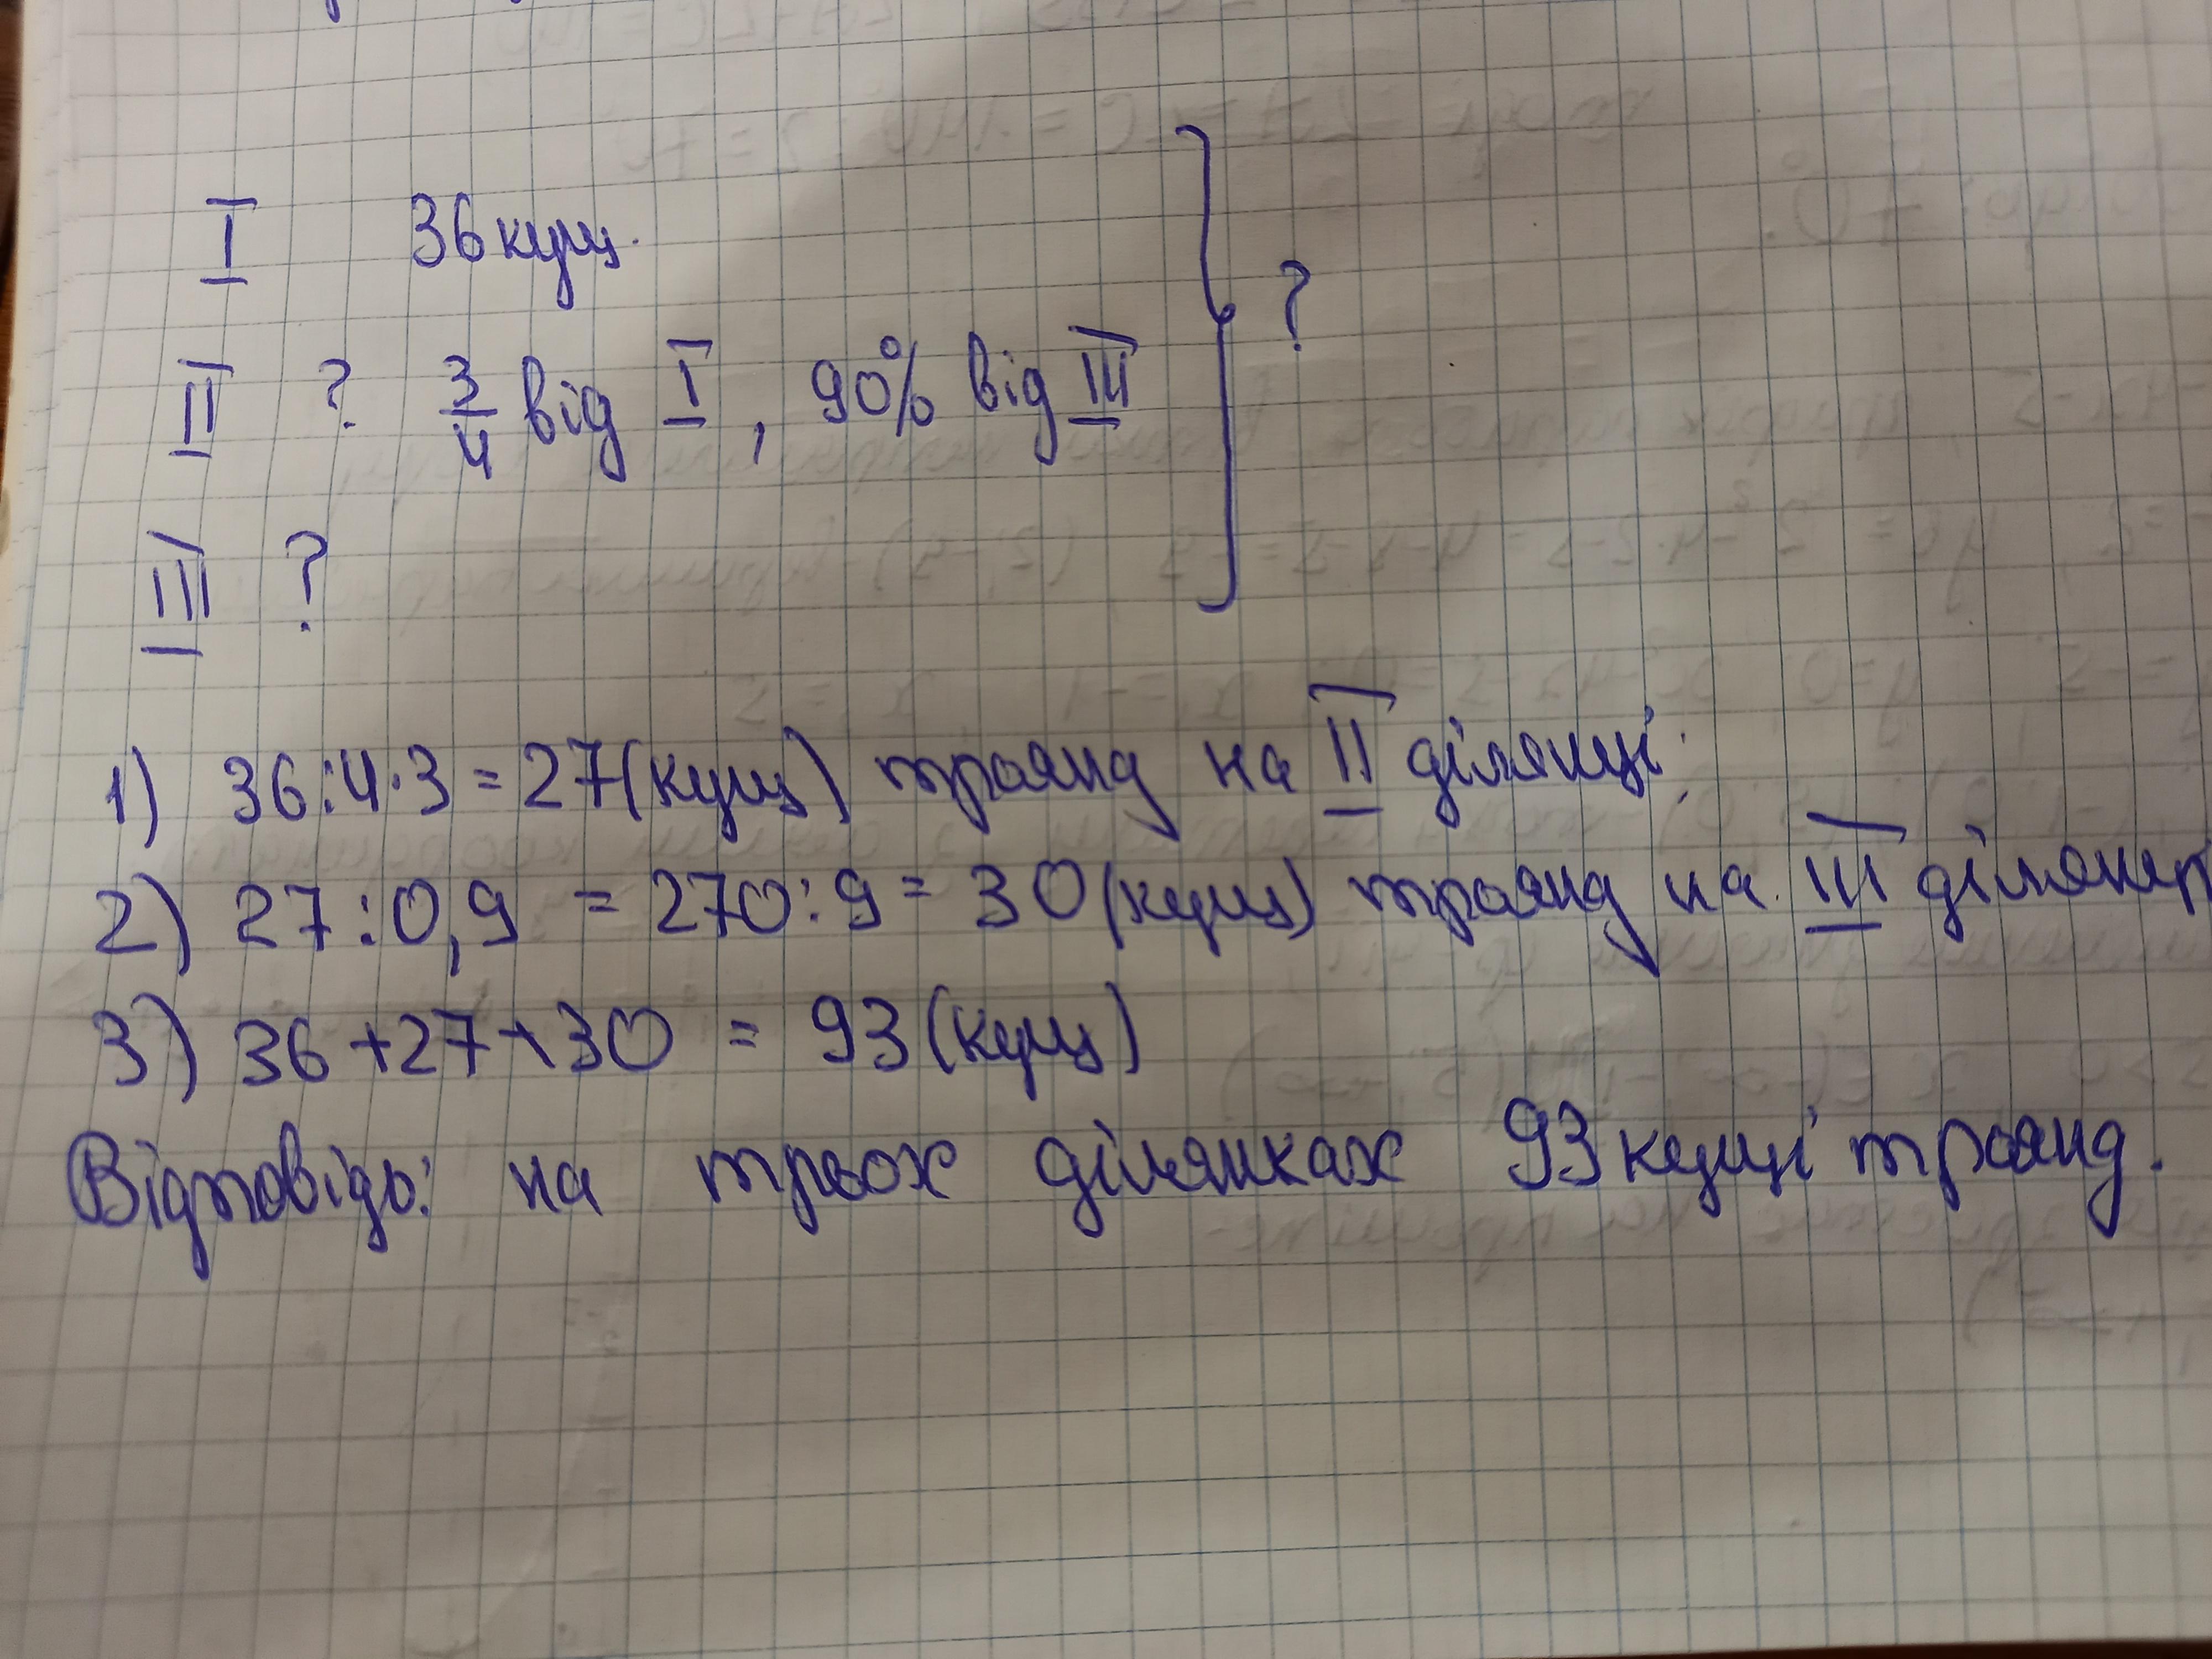 I 36 кущ.
II ? 3/4 від I, 90% від III
?
III ?
1) 36:4·3=27(кущ) троянд на II ділянці.
2) 27:0,9 = 270:9 = 30(кущ) троянд на III ділянці
3) 36+27+30 = 93(кущ)
Відповідь: на трьох ділянках 93 кущі троянд.